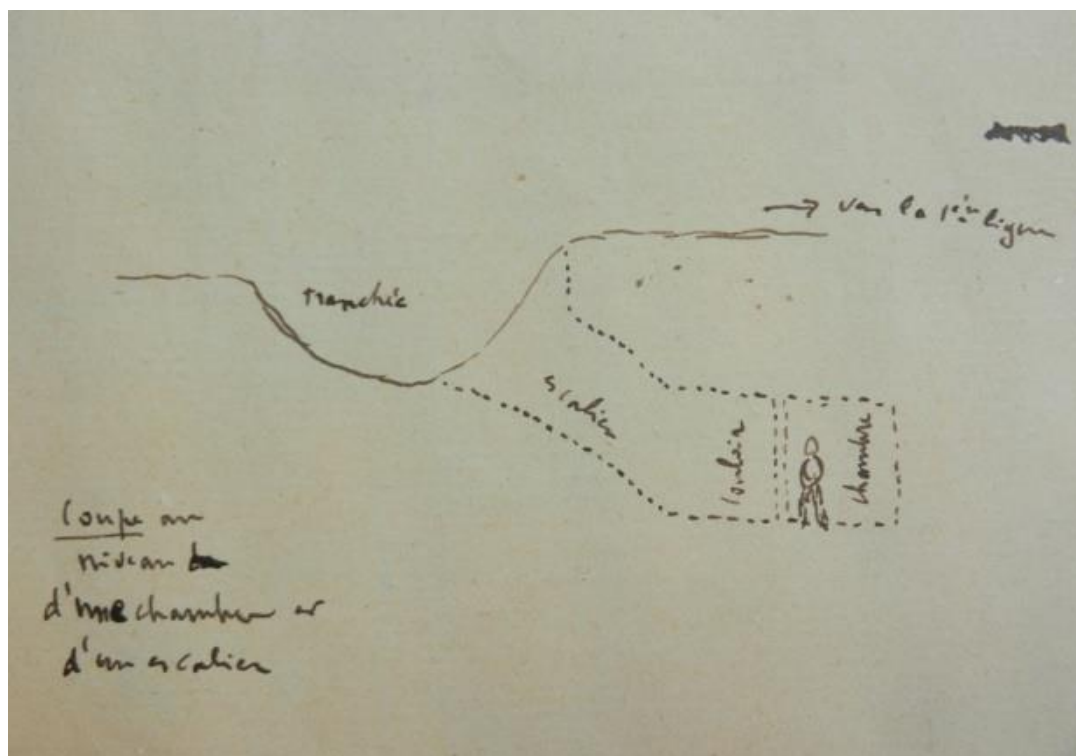 → vers la 1ère ligne
tranchée
escalier
couloir
chambre
Coupe au
niveau
d'une chambre et
d'un escalier